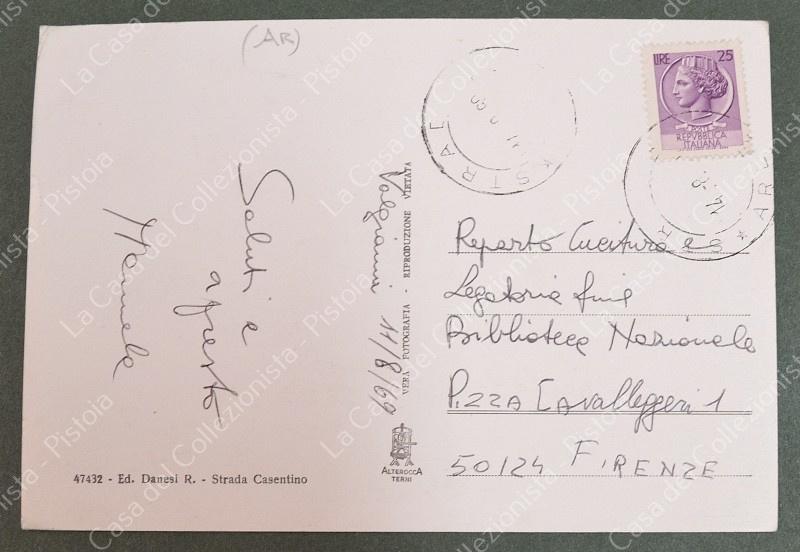 (AR)
LIRE 25
POSTE
REPVBBLICA
ITALIANA
STRADA
Saluti e
affetto
Manuela
11/8/69
VERA FOTOGRAFIA - RIPRODUZIONE VIETATA
Reparto Cucitura e
Legatoria fine
Biblioteca Nazionale
P.ZZA CAvalleggeri 1
50124 FIRENZE
ALTEROCCA
TERNI
47432 - Ed. Danesi R. - Strada Casentino
La Casa del Collezionista - Pistoia